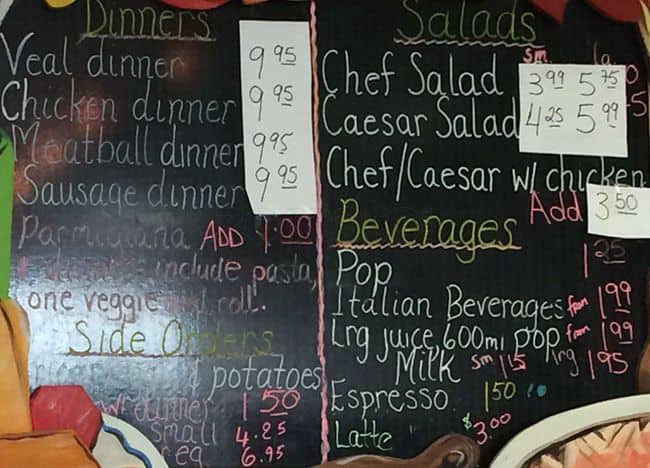 Dinners
Veal dinner 9 95
Chicken dinner 9 95
Meatball dinner 9 95
Sausage dinner 9 95
Parmigiana ADD 1.00
include pasta,
one veggie roll.
Side Orders
potatoes
w/ dinner 1 50
small 4.25
6.95
Salads
sm
Chef Salad 3 99 5 75
Caesar Salad 4 25 5 99
Chef/Caesar w/ chicken
Add 3 50
Beverages
Pop 1 25
Italian Beverages from 1 99
Lrg juice, 600ml pop from 1 99
Milk sm 1 15 lrg 1 95
Espresso 1 50
Latte $3.00